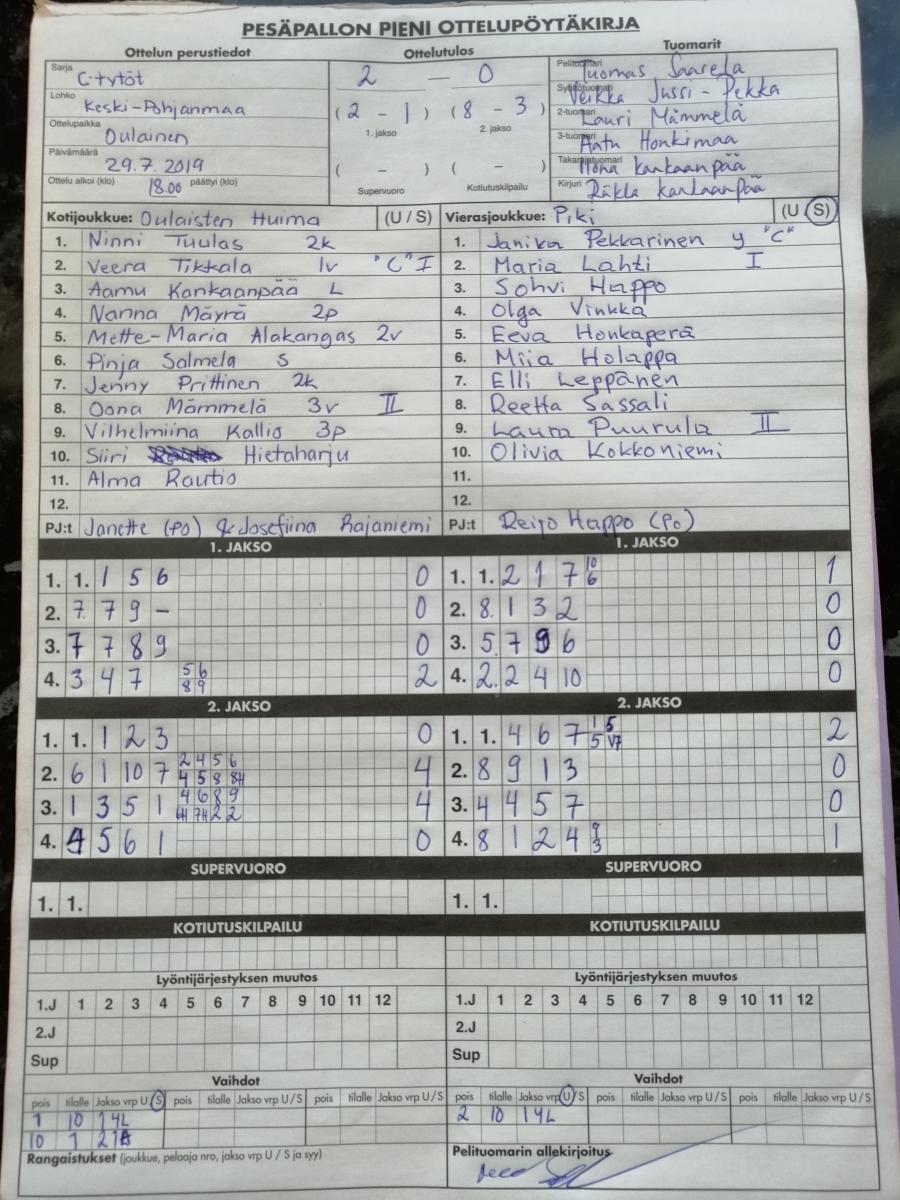 PESÄPALLON PIENI OTTELUPÖYTÄKIRJA
Ottelun perustiedot
Sarja C-tytöt
Lohko Keski-Pohjanmaa
Ottelupaikka Oulainen
Päivämäärä 29.7.2019
Ottelu alkoi (klo) 18.00 päättyi (klo)
Ottelutulos
2 – 0
(2 - 1) (8 - 3)
1. jakso 2. jakso
( - ) ( - )
Supervuoro Kotiutuskilpailu
Tuomarit
Pelituomari Tuomas Saarela
Syöttötuomari Veikka Jussi-Pekka
2-tuomari Lauri Mämmelä
3-tuomari Aatu Honkimaa
Takarajatuomari kankaanpää
Kirjuri kankaanpää
Kotijoukkue: Oulaisten Huima (U / S)
1. Ninni Tuulas 2k
2. Veera Tikkala 1v "C" I
3. Aamu Kankaanpää L
4. Nanna Mäyrä 2p
5. Mette-Maria Alakangas 2v
6. Pinja Salmela S
7. Jenny Prittinen 2k
8. Oona Mämmelä 3v II
9. Vilhelmiina Kallio 3p
10. Siiri Hietaharju
11. Alma Rautio
12.
PJ:t Janette (PO) & Josefiina Rajaniemi
Vierasjoukkue: Piki (U / S)
1. Janika Pekkarinen y "C"
2. Maria Lahti I
3. Sohvi Happo
4. Olga Vinkka
5. Eeva Honkaperä
6. Miia Holappa
7. Elli Leppänen
8. Reetta Sassali
9. Laura Puurula II
10. Olivia Kokkoniemi
11.
12.
PJ:t Reijo Happo (PO)
1. JAKSO
1. 1. 1 5 6 0
2. 7. 7 9 – 0
3. 7 7 8 9 0
4. 3 4 7 5 6 2
8 9
1. JAKSO
1. 1. 2 1 7 10 1
6
2. 8. 1 3 2 0
3. 5. 7 9 6 0
4. 2. 2 4 10 0
2. JAKSO
1. 1. 1 2 3 0
2. 6 1 10 7 2 4 5 6 4
4 5 8 8H
3. 1 3 5 1 4 6 8 9 4
7H 2 2
4. 4 5 6 1 0
2. JAKSO
1. 1. 4 6 7 1 5 2
5 V7
2. 8 9 1 3 0
3. 4 4 5 7 0
4. 8 1 2 4 9 1
3
SUPERVUORO
1. 1.
SUPERVUORO
1. 1.
KOTIUTUSKILPAILU
KOTIUTUSKILPAILU
Lyöntijärjestyksen muutos
1.J 1 2 3 4 5 6 7 8 9 10 11 12
2.J
Sup
Lyöntijärjestyksen muutos
1.J 1 2 3 4 5 6 7 8 9 10 11 12
2.J
Sup
Vaihdot
pois tilalle Jakso vrp U / S pois tilalle Jakso vrp U / S pois tilalle Jakso vrp U / S
1 10 1 4L
10 1 2 1
Vaihdot
pois tilalle Jakso vrp U / S pois tilalle Jakso vrp U / S pois tilalle Jakso vrp U / S
2 10 1 4L
Rangaistukset (joukkue, pelaaja nro, jakso vrp U / S ja syy)
Pelituomarin allekirjoitus